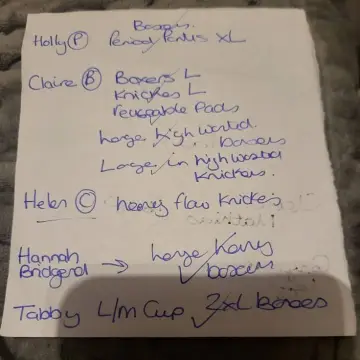 Boxers.
Holly (P) Period Pants XL
Claire (B) Boxers L
Knickers L
reuseable Pads
Large high waisted
boxers
Large in high waisted
Knickers.
Helen (C) heavy flow Knickers
Hannah → Large
Bridgend boxers
Tabby L/M Cup 2xl boxers